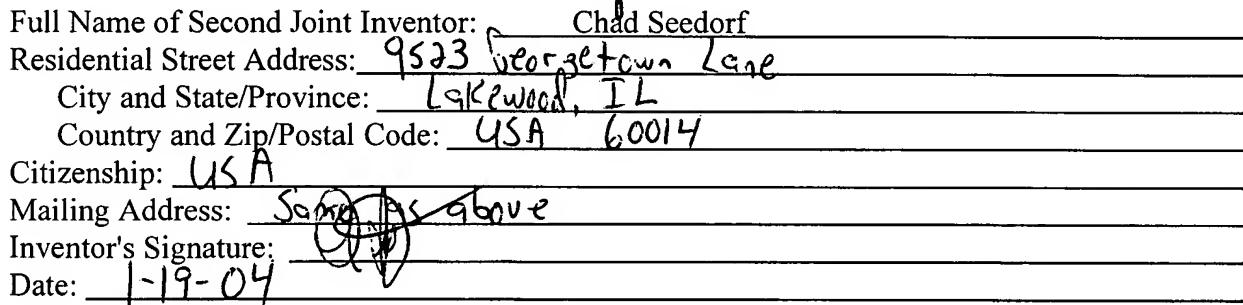 Full Name of Second Joint Inventor: Chad Seedorf
Residential Street Address: 9523 Georgetown Lane
City and State/Province: Lakewood, IL
Country and Zip/Postal Code: USA 60014
Citizenship: USA
Mailing Address: Same as above
Inventor's Signature:
Date: 1-19-04